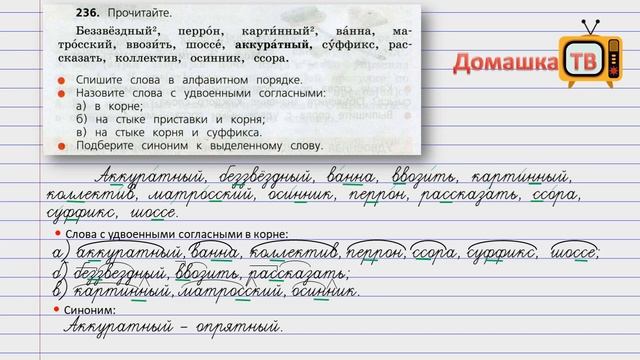 236. Прочитайте.
Беззвёздный², перро́н, карти́нный², ва́нна, ма-
тро́сский, ввози́ть, шоссе́, аккура́тный, су́ффикс, рас-
сказать, коллектив, осинник, ссора.
Спишите слова в алфавитном порядке.
Назовите слова с удвоенными согласными:
а) в корне;
б) на стыке приставки и корня;
в) на стыке корня и суффикса.
Подберите синоним к выделенному слову.
Домашка
ТВ
Аккура́тный, беззвёздный, ва́нна, ввози́ть, карти́нный,
коллекти́в, матро́сский, оси́нник, перро́н, рассказа́ть, ссо́ра,
су́ффикс, шоссе.
Слова с удвоенными согласными в корне:
а) аккуратный, ванна, коллектив, перрон, ссора, суффикс, шоссе;
б) беззвездный, ввозить, рассказать;
в) картинный, матросский, осинник.
Синоним:
Аккуратный – опрятный.